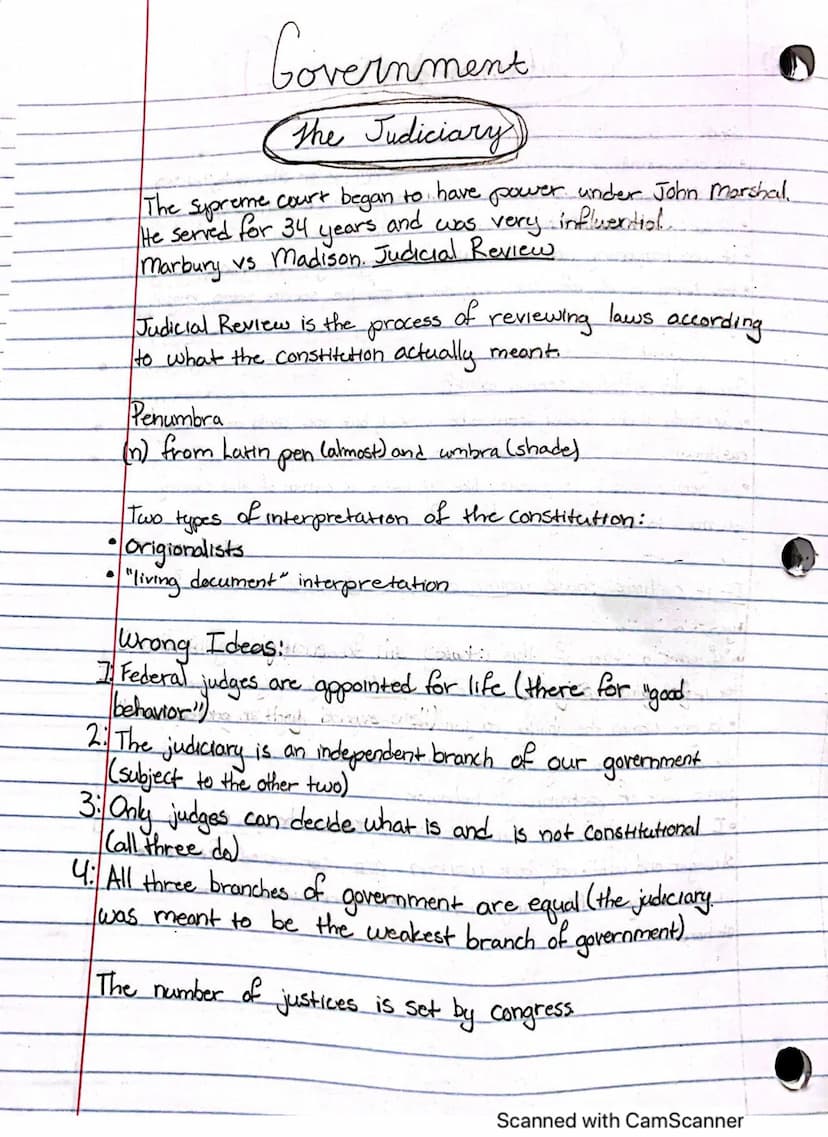 Government
The Judiciary
The supreme court began to have power under John Marshal.
He served for 34 years and was very influential.
Marbury vs Madison. Judicial Review
Judicial Review is the process of reviewing laws according
to what the constitution actually meant.
Penumbra
(n) from Latin pen (almost) and umbra (shade)
Two types of interpretation of the constitution:
• Origionalists
• "living document" interpretation
Wrong Ideas:
1: Federal judges are appointed for life (there for "good
behavior")
2: The judiciary is an independent branch of our government
(subject to the other two)
3: Only judges can decide what is and is not constitutional
(all three do)
4: All three branches of government are equal (the judiciary
was meant to be the weakest branch of government)
The number of justices is set by congress
Scanned with CamScanner